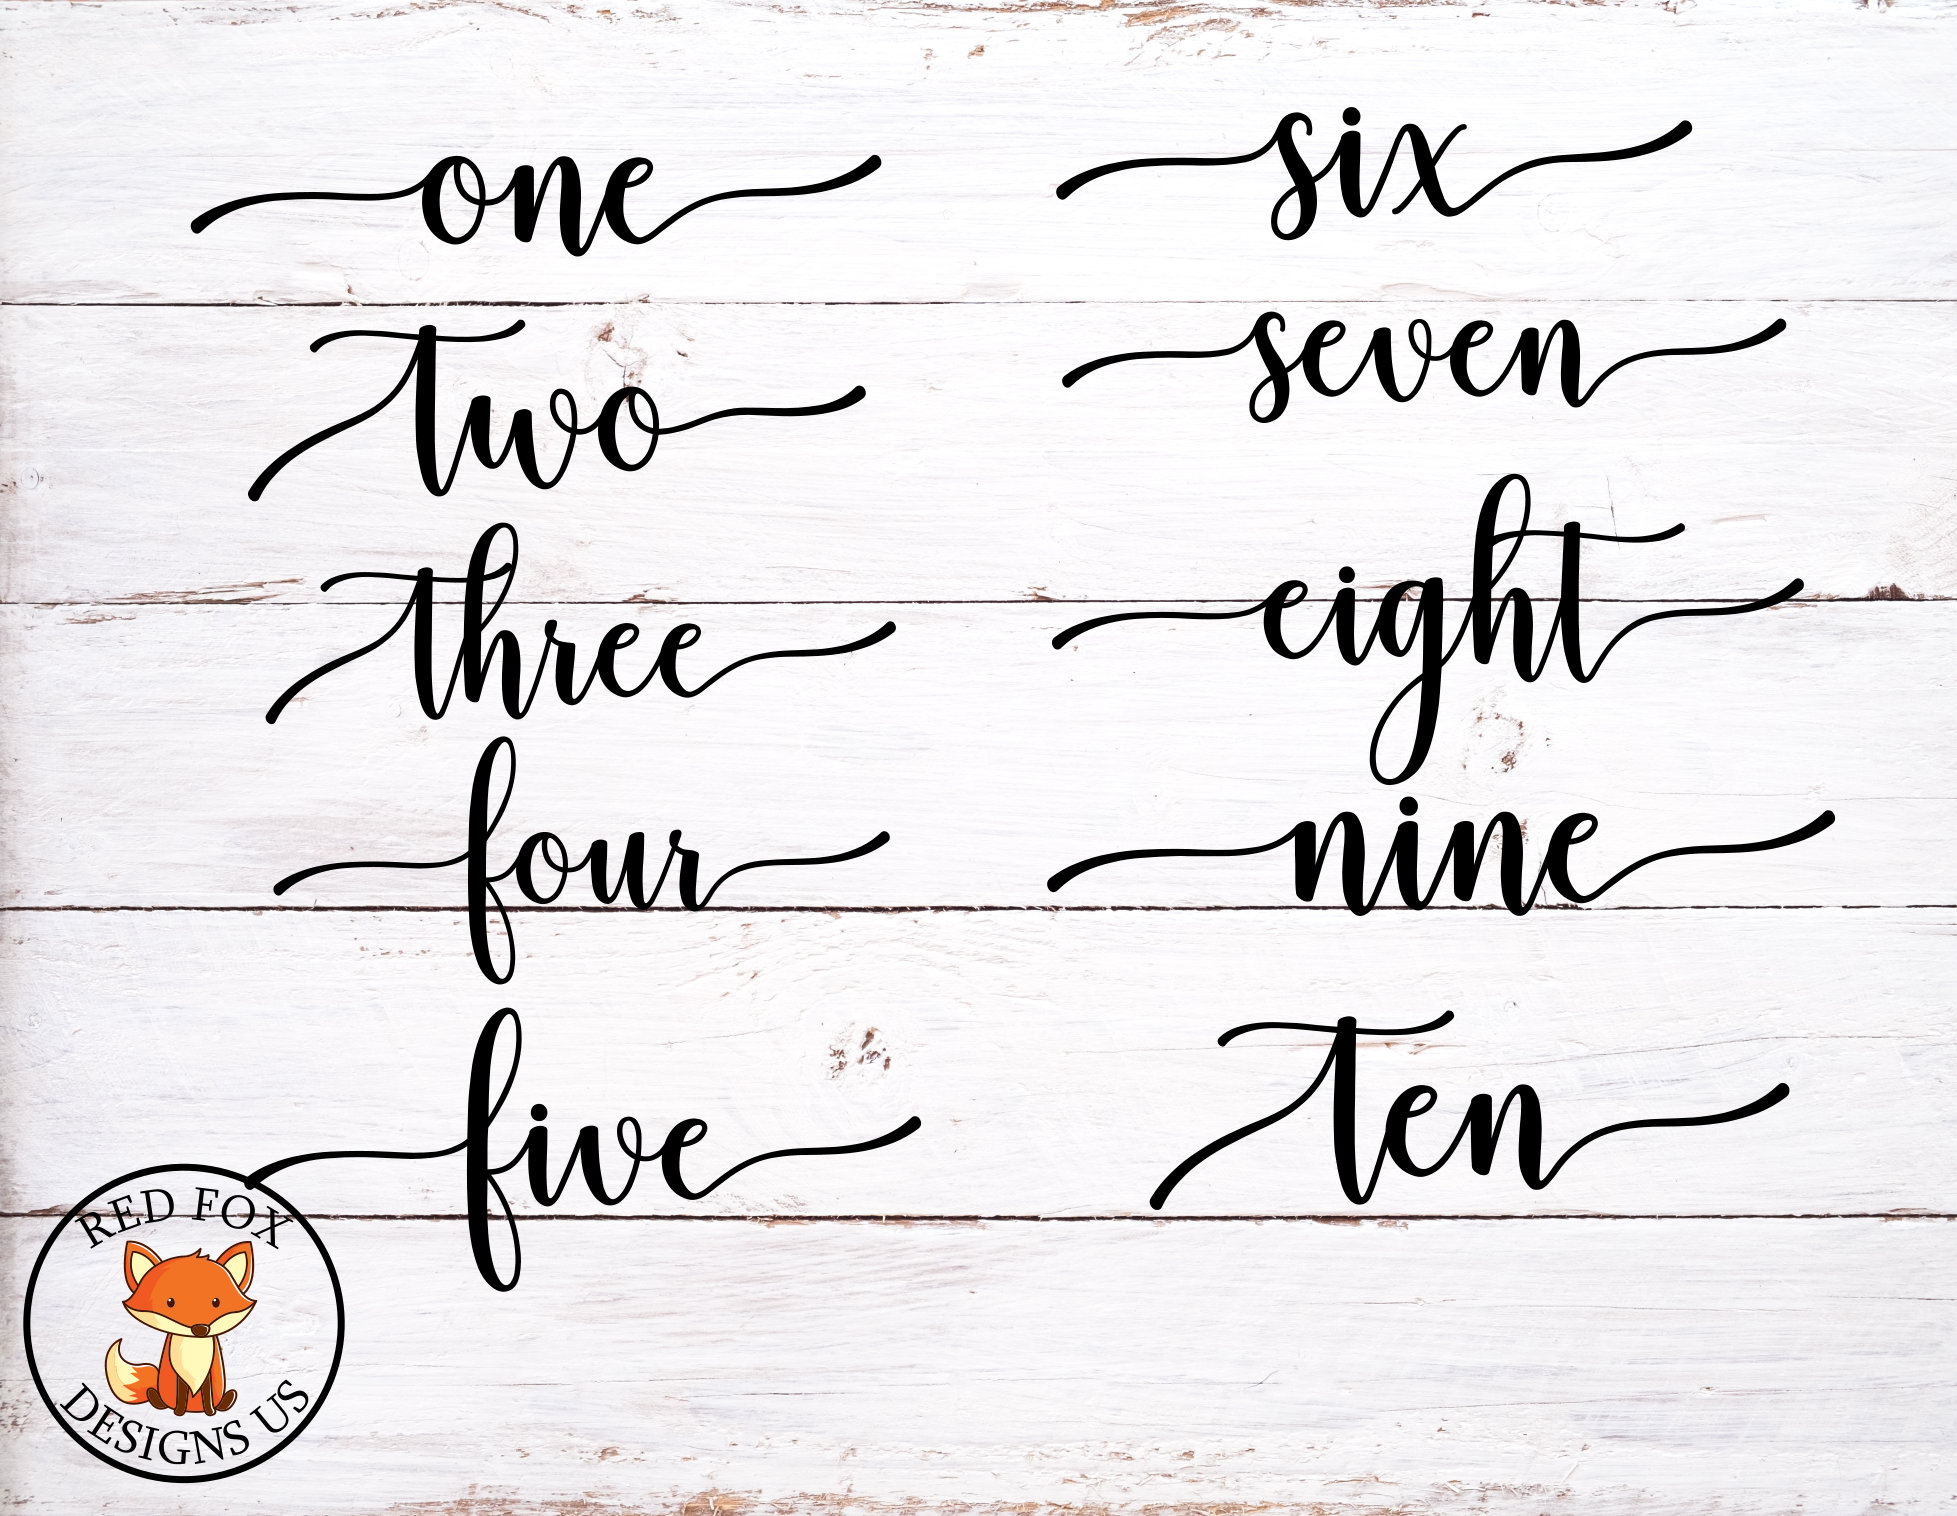 one
two
three
four
five
six
seven
eight
nine
ten
RED FOX
DESIGNS US